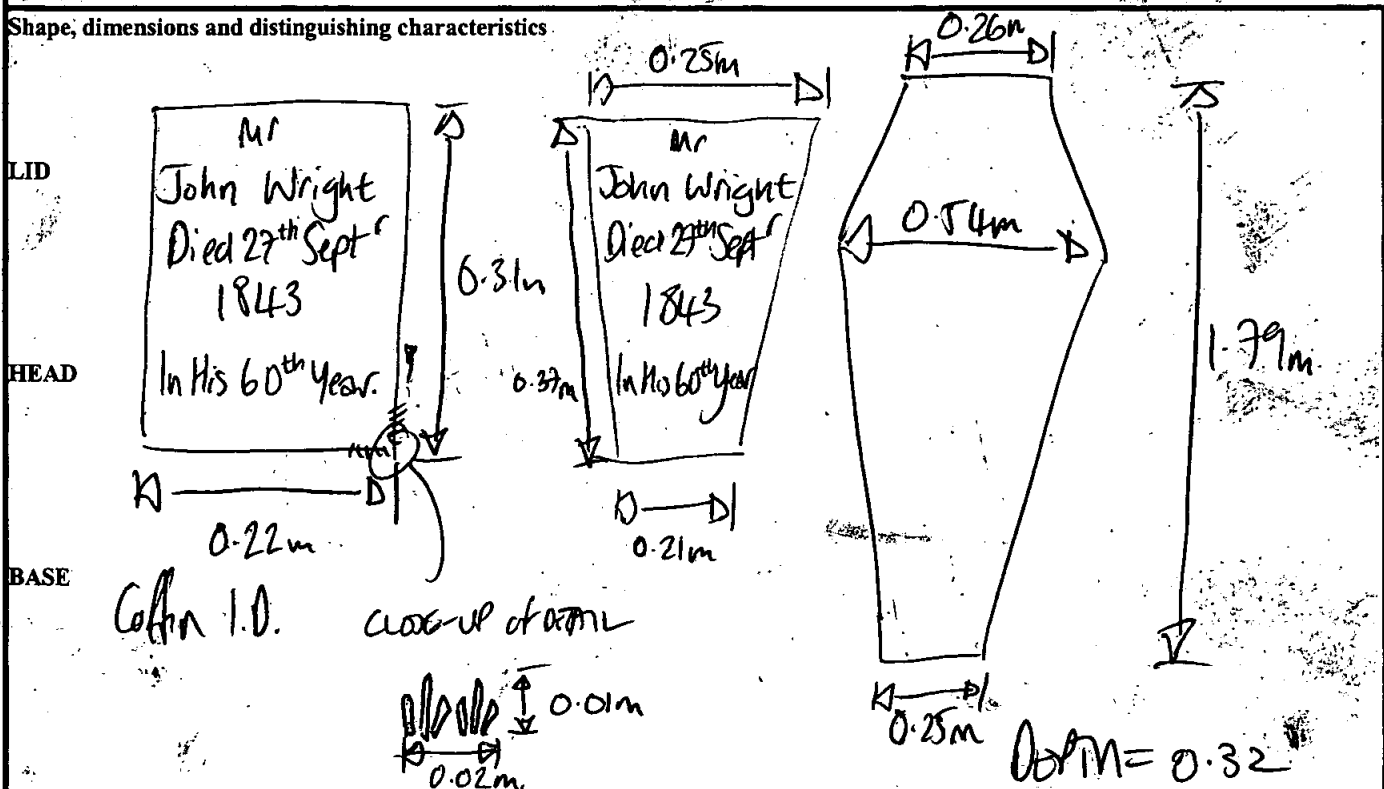 Shape, dimensions and distinguishing characteristics
LID
HEAD
BASE
Mr
John Wright
Died 27th Septr
1843
In His 60th Year.
0.31m
0.22m
Coffin I.D.
CLOSE-UP of DETAIL
0.01m
0.02m.
0.25m
Mr
John Wright
Died 27th Septr
1843
In His 60th Year
0.37m
0.21m
0.26m
0.54m
1.79m.
0.25m
DEPTH = 0.32